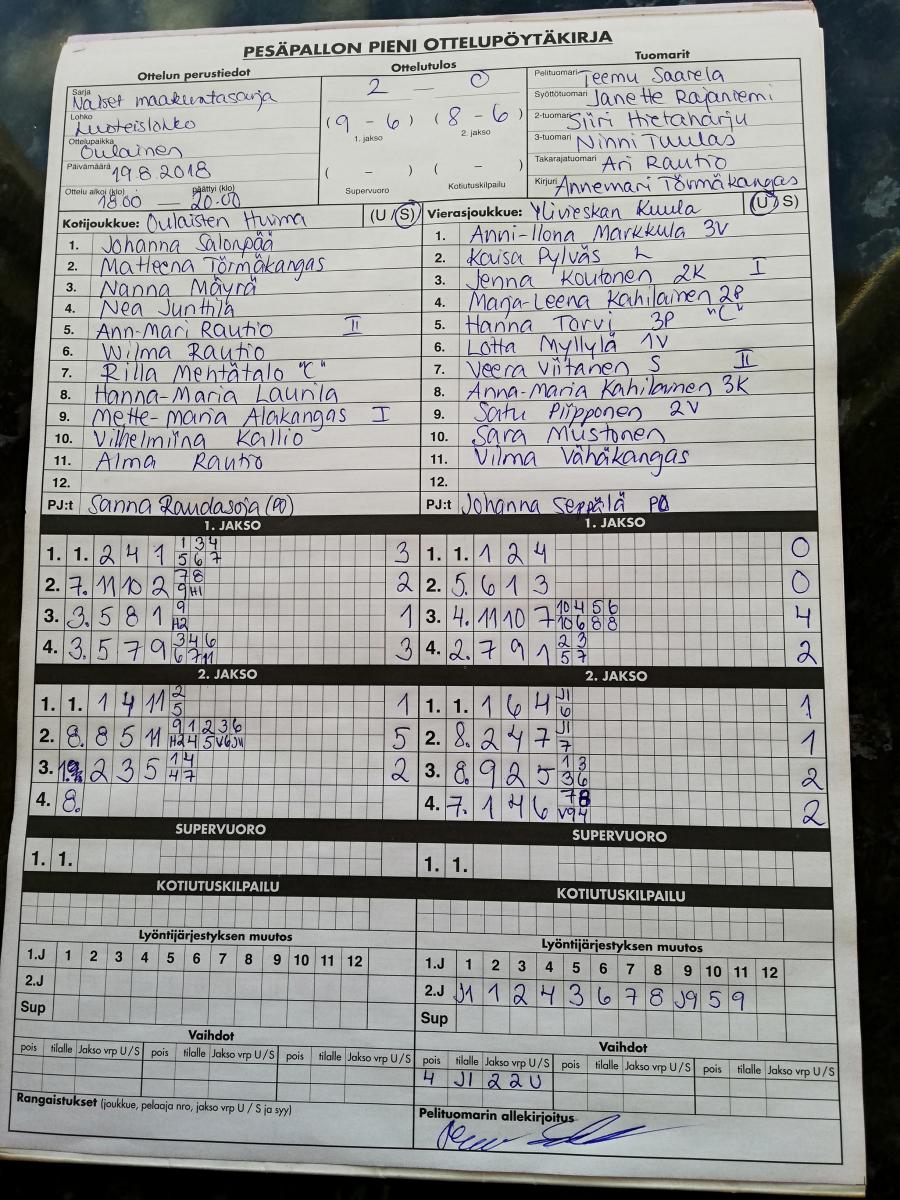 PESÄPALLON PIENI OTTELUPÖYTÄKIRJA
Ottelun perustiedot
Sarja Naiset maakuntasarja
Lohko Luoteislohko
Ottelupaikka Oulainen
Päivämäärä 19.8.2018
Ottelu alkoi (klo) 18.00 — päättyi (klo) 20.00
Ottelutulos
2 — 0
(9 - 6) (8 - 6)
1. jakso 2. jakso
( - ) ( - )
Supervuoro Kotiutuskilpailu
Tuomarit
Pelituomari Teemu Saarela
Syöttötuomari Janette Rajaniemi
2-tuomari Siiri Hietaharju
3-tuomari Ninni Tuulas
Takarajatuomari Ari Rautio
Kirjuri Annemari Törmäkangas
Kotijoukkue: Oulaisten Huima (U/S)
1. Johanna Salonpää
2. Matleena Törmäkangas
3. Nanna Mäyrä
4. Nea Junttila
5. Ann-Mari Rautio II
6. Wilma Rautio
7. Rilla Mehtätalo "C"
8. Hanna-Maria Laurila
9. Mette-Maria Alakangas I
10. Vilhelmiina Kallio
11. Alma Rautio
12.
PJ:t Sanna Raudasoja (PO)
Vierasjoukkue: Ylivieskan Kuula (U/S)
1. Anni-Ilona Markkula 3V
2. Kaisa Pylväs L
3. Jenna Koutonen 2K I
4. Marja-Leena Kahilainen 2P
5. Hanna Torvi 3P "C"
6. Lotta Myllylä 1V
7. Veera Viitanen S II
8. Anna-Maria Kahilainen 3K
9. Satu Piipponen 2V
10. Sara Mustonen
11. Vilma Vähäkangas
12.
PJ:t Johanna Seppälä PO
1. JAKSO
1. 1. 2 4 1 1 3 4 3
5 6 7
2. 7. 11 10 2 7 8 2
9 H1
3. 3. 5 8 1 9 1
H2
4. 3. 5 7 9 3 4 6 3
6 7 11
2. JAKSO
1. 1. 1 4 11 2 1
5
2. 8. 8 5 11 9 1 2 3 6 5
H2 4 5 V6 JV
3. 2 3 5 1 4 2
4 7
4. 8.
SUPERVUORO
1. 1.
KOTIUTUSKILPAILU
1. JAKSO
1. 1. 1 2 4 0
2. 5. 6 1 3 0
3. 4. 11 10 7 10 4 5 6 4
10 6 8 8
4. 2. 7 9 1 2 3 2
5 7
2. JAKSO
1. 1. 1 6 4 J1 1
6
2. 8. 2 4 7 J1 1
7
3. 8. 9 2 5 1 3 2
3 6
4. 7. 1 4 6 7 8 2
V9 4
SUPERVUORO
1. 1.
KOTIUTUSKILPAILU
Lyöntijärjestyksen muutos
1.J 1 2 3 4 5 6 7 8 9 10 11 12
2.J
Sup
Vaihdot
pois tilalle Jakso vrp U/S pois tilalle Jakso vrp U/S pois tilalle Jakso vrp U/S
Rangaistukset (joukkue, pelaaja nro, jakso vrp U / S ja syy)
Lyöntijärjestyksen muutos
1.J 1 2 3 4 5 6 7 8 9 10 11 12
2.J J1 1 2 4 3 6 7 8 J9 5 9
Sup
Vaihdot
pois tilalle Jakso vrp U/S pois tilalle Jakso vrp U/S pois tilalle Jakso vrp U/S
4 J1 2 2 U
Pelituomarin allekirjoitus